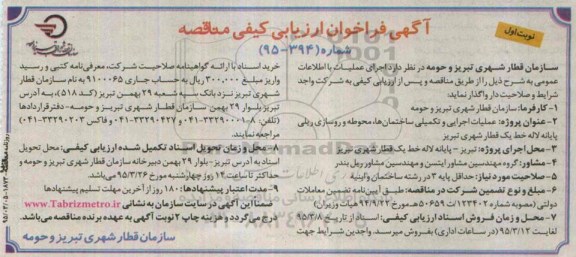 نوبت اول
آگهی فراخوان ارزیابی کیفی مناقصه
شماره (۳۹۴-۹۵)
سازمان قطار شهری تبریز و حومه در نظر دارد اجرای عملیات با اطلاعات
عمومی به شرح ذیل را از طریق مناقصه و پس از ارزیابی کیفی به شرکت واجد
شرایط و صلاحیت دار واگذار نماید:
۱-کارفرما: سازمان قطار شهری تبریز و حومه
۲-عنوان پروژه: عملیات اجرایی و تکمیلی ساختمان‌ها، محوطه و روسازی ریلی
پایانه لاله خط یک قطار شهری تبریز
۳-محل اجرای پروژه: تبریز - پایانه لاله خط یک قطار شهری تبریز
۴-مشاور: گروه مهندسین مشاور ایتسن و مهندسین مشاور ریل بندر
۵-صلاحیت مورد نیاز: حداقل پایه ۳ در رشته ساختمان و ابنیه
۶-مبلغ و نوع تضمین شرکت در مناقصه: طبق آیین نامه تضمین معاملات
دولتی (مصوبه شماره ۱۲۳۴۰۲/ت۵۰۶۵۹ هـ مورخ ۹۴/۹/۲۲ هیات وزیران)
۷-محل و زمان فروش اسناد ارزیابی کیفی: اسناد از تاریخ ۹۵/۳/۸
لغایت ۹۵/۳/۱۲ (در ساعات اداری) بفروش میرسد. واجدین شرایط جهت
خرید اسناد با ارائه گواهینامه صلاحیت شرکت، معرفی‌نامه کتبی و رسید
واریز مبلغ ۳۰۰,۰۰۰ ریال به حساب جاری ۹۱۰۰۰۶۵ به نام سازمان قطار
شهری تبریز نزد بانک سپه شعبه ۲۹ بهمن تبریز (کد ۵۱۸)، به آدرس
تبریز بلوار ۲۹ بهمن سازمان قطار شهری تبریز و حومه- دفتر قراردادها
(تلفن: ۸-۰۴۱-۳۳۲۹۰۰۰۱ و ۰۴۱-۳۳۲۹۰۴۲۷ و فاکس ۰۴۱-۳۳۲۹۰۲۰۳)
مراجعه نمایند.
۸-محل و زمان تحویل اسناد تکمیل شده ارزیابی کیفی: محل تحویل
اسناد به آدرس تبریز- بلوار ۲۹ بهمن دبیرخانه سازمان قطار شهری تبریز و حومه و
حداکثر تا ساعت ۱۴ روز چهارشنبه مورخ ۹۵/۳/۲۶ می‌باشد.
۹-مدت اعتبار پیشنهادها: ۱۸۰ روز از آخرین مهلت تسلیم پیشنهادها
ضمنا این آگهی در سایت سازمان به نشانی www.Tabrizmetro.ir
درج می‌گردد و هزینه چاپ ۲ نوبت آگهی به عهده برنده مناقصه می‌باشد.
سازمان قطار شهری تبریز و حومه